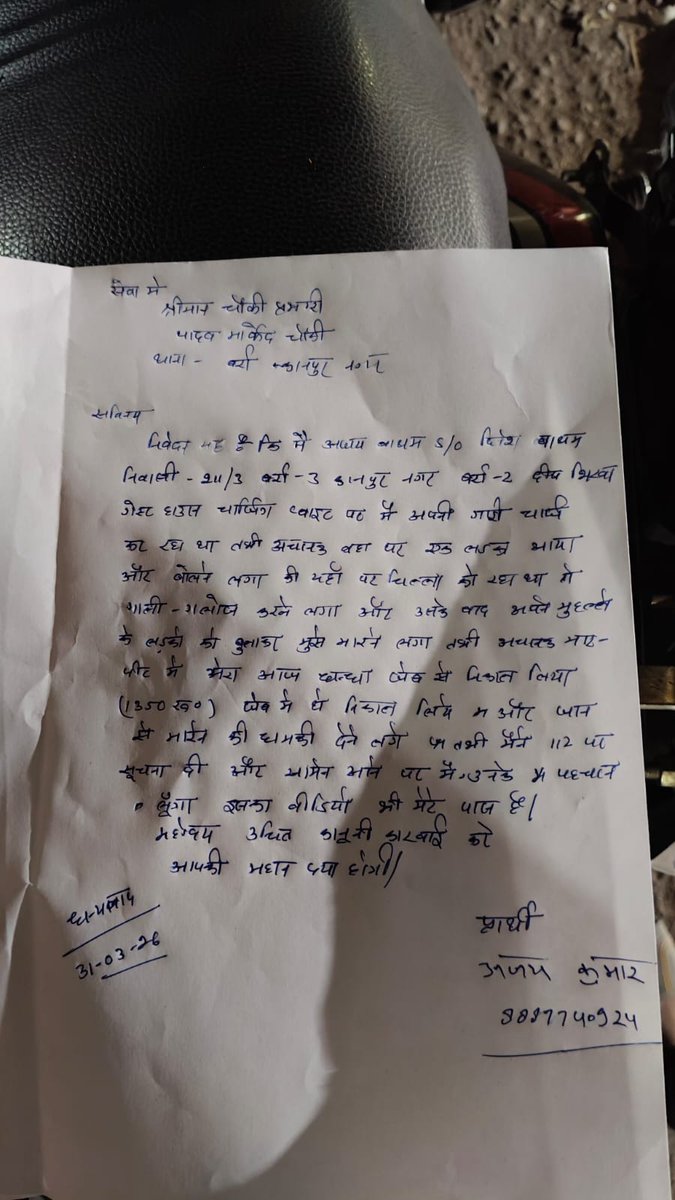 सेवा मे
श्रीमान चौकी प्रभारी
यादव मार्केट चौकी
थाना - बर्रा कानपुर नगर
सविनय
निवेदन यह है कि मै अजय बाथम S/O दिनेश बाथम
निवासी - 211/3 बर्रा -3 कानपुर नगर बर्रा -2 दीप
गेस्ट हाउस चार्जिंग प्वाइंट पर मै अपनी गाड़ी चार्ज
कर रहा था तभी अचानक वहा पर एक लड़का आया
और बोलने लगा की यहाँ पर चिल्ला को रहा था मे
गाली-गलौज करने लगा और उसके बाद अपने मुहल्ले
के लड़को को बुलाकर मुझे मारने लगा तभी अचानक मार-
पीट मे मेरा जेब से निकाल लिया
(1350 रु०) जेब मे थे निकाल लिये और जान
से मारने की धमकी देने लगे तभी मैने 112 पर
सूचना दी और सामने आने पर मै उनके पहचान
लूँगा इसका वीडियो भी मेरे पास है।
महोदय उचित कानूनी कारवाई को
आपकी महान दया होगी।
धन्यवाद
31-03-26
प्रार्थी
अजय कुमार